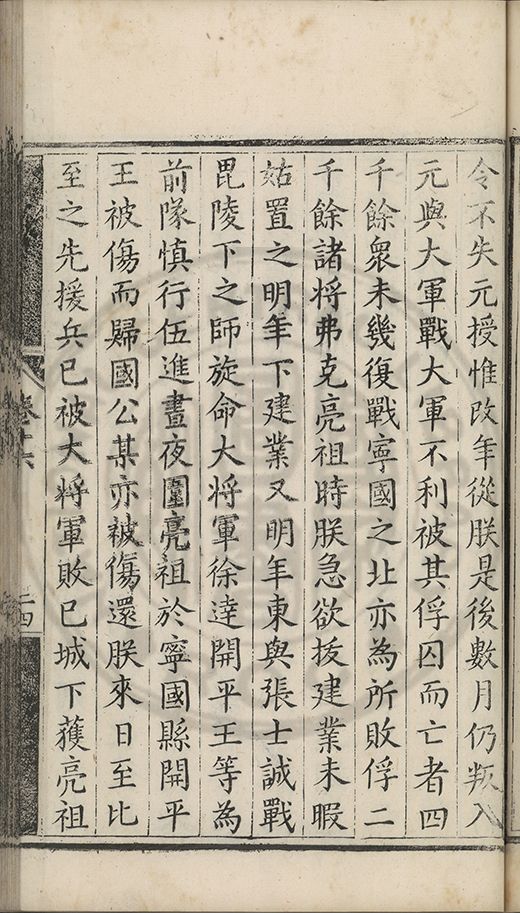 令不失元授惟改年從朕是後數月仍叛入
元與大軍戰大軍不利被其俘囚而亡者四
千餘衆未幾復戰寧國之北亦為所敗俘二
千餘諸将弗克亮祖時朕急欲拔建業未暇
姑置之明年下建業又明年東與張士誠戰
毘陵下之師旋命大将軍徐逹開平王等為
前隊慎行伍進晝夜圍亮祖於寧國縣開平
王被傷而歸國公某亦被傷還朕來日至比
至之先援兵已被大将軍敗已城下獲亮祖